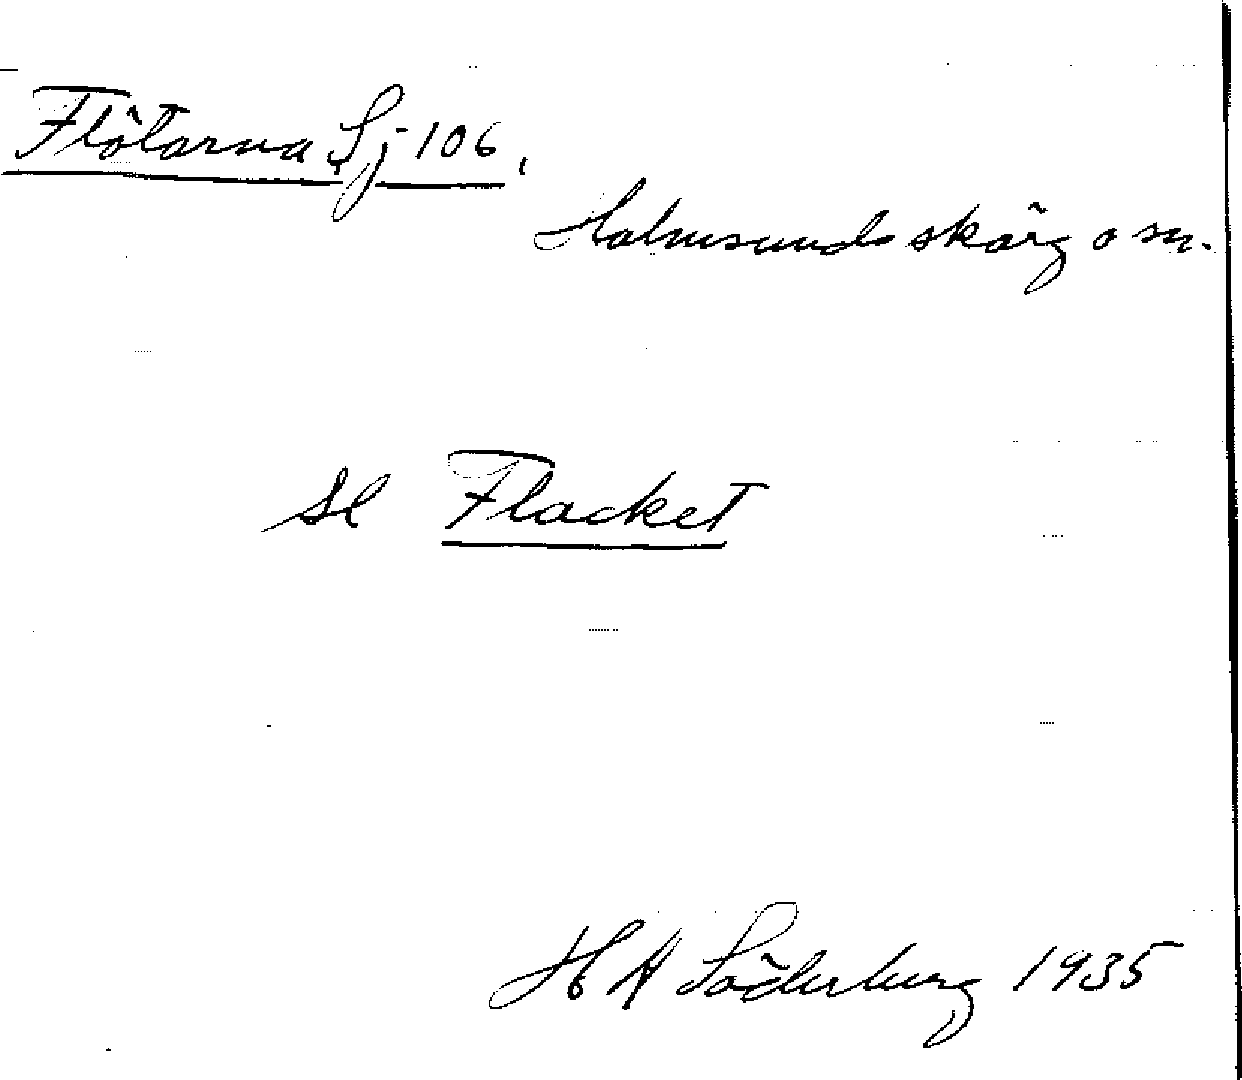 Flötarna Sj 106,
Holmsunds skärg o sn.
se Flacket
H A Söderberg 1935